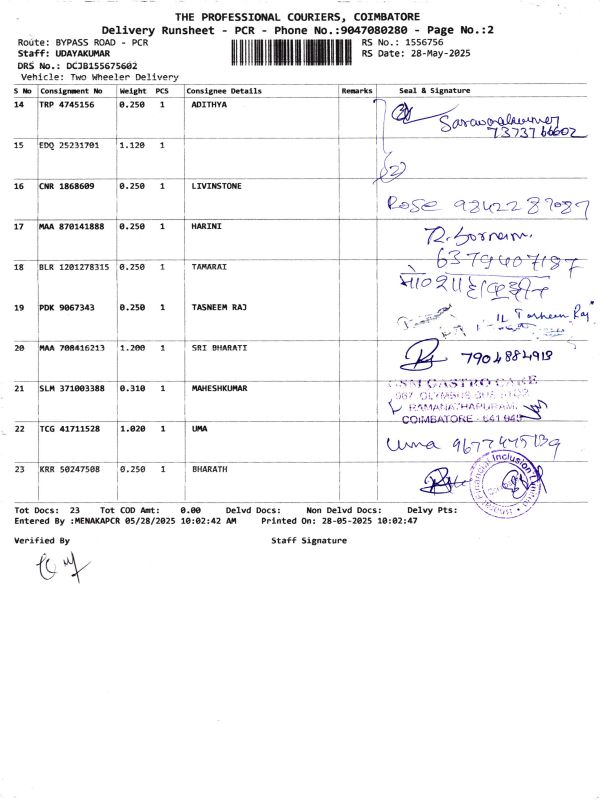 THE PROFESSIONAL COURIERS, COIMBATORE
Delivery Runsheet - PCR - Phone No.:9047080280 - Page No.:2
Route: BYPASS ROAD - PCR
RS No.: 1556756
Staff: UDAYAKUMAR
RS Date: 28-May-2025
DRS No.: DCJB155675602
Vehicle: Two Wheeler Delivery
S No Consignment No Weight PCS Consignee Details Remarks Seal & Signature
14 TRP 4745156 0.250 1 ADITHYA
7373766602
15 EDQ 25231701 1.120 1
(2)
16 CNR 1868609 0.250 1 LIVINSTONE
Rose 9842289087
17 MAA 870141888 0.250 1 HARINI
6379407187
18 BLR 1201278315 0.250 1 TAMARAI
19 PDK 9067343 0.250 1 TASNEEM RAJ
Tasneem Raj
20 MAA 708416213 1.200 1 SRI BHARATI
7904884919
21 SLM 371003388 0.310 1 MAHESHKUMAR
GSM GASTRO CARE
RAMANATHAPURAM,
COIMBATORE - 641 045
22 TCG 41711528 1.020 1 UMA
Uma 9677475139
23 KRR 50247508 0.250 1 BHARATH
Financial Inclusion
Tot Docs: 23 Tot COD Amt: 0.00 Delvd Docs: Non Delvd Docs: Delvy Pts:
Entered By :MENAKAPCR 05/28/2025 10:02:42 AM Printed On: 28-05-2025 10:02:47
Verified By Staff Signature